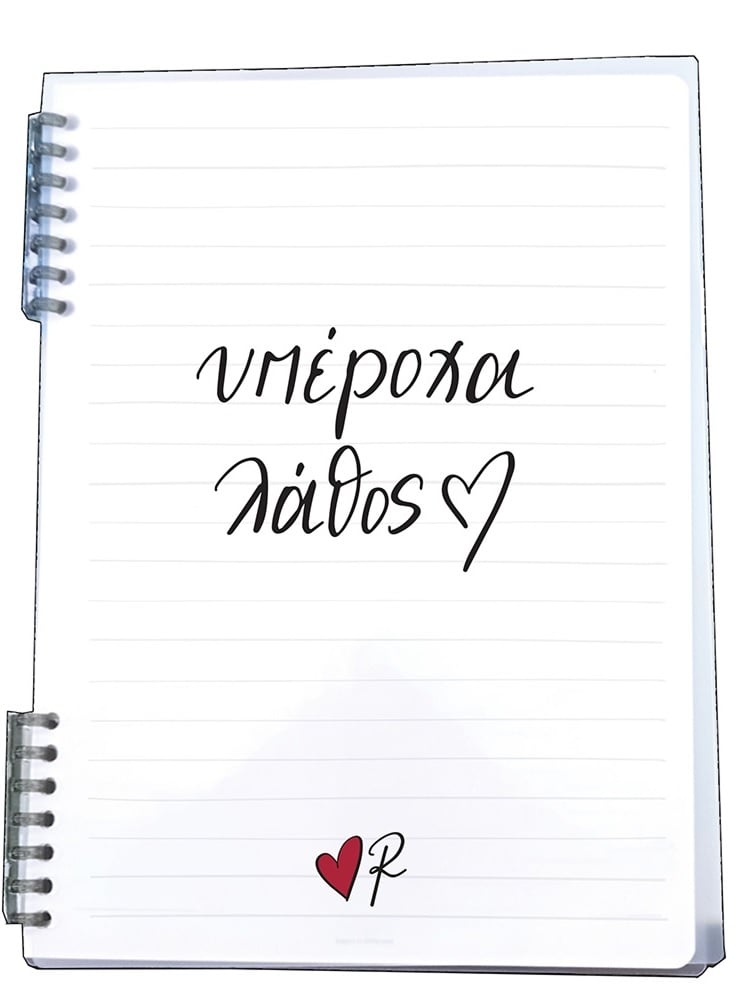 υπέροχα
λάθος♡
R